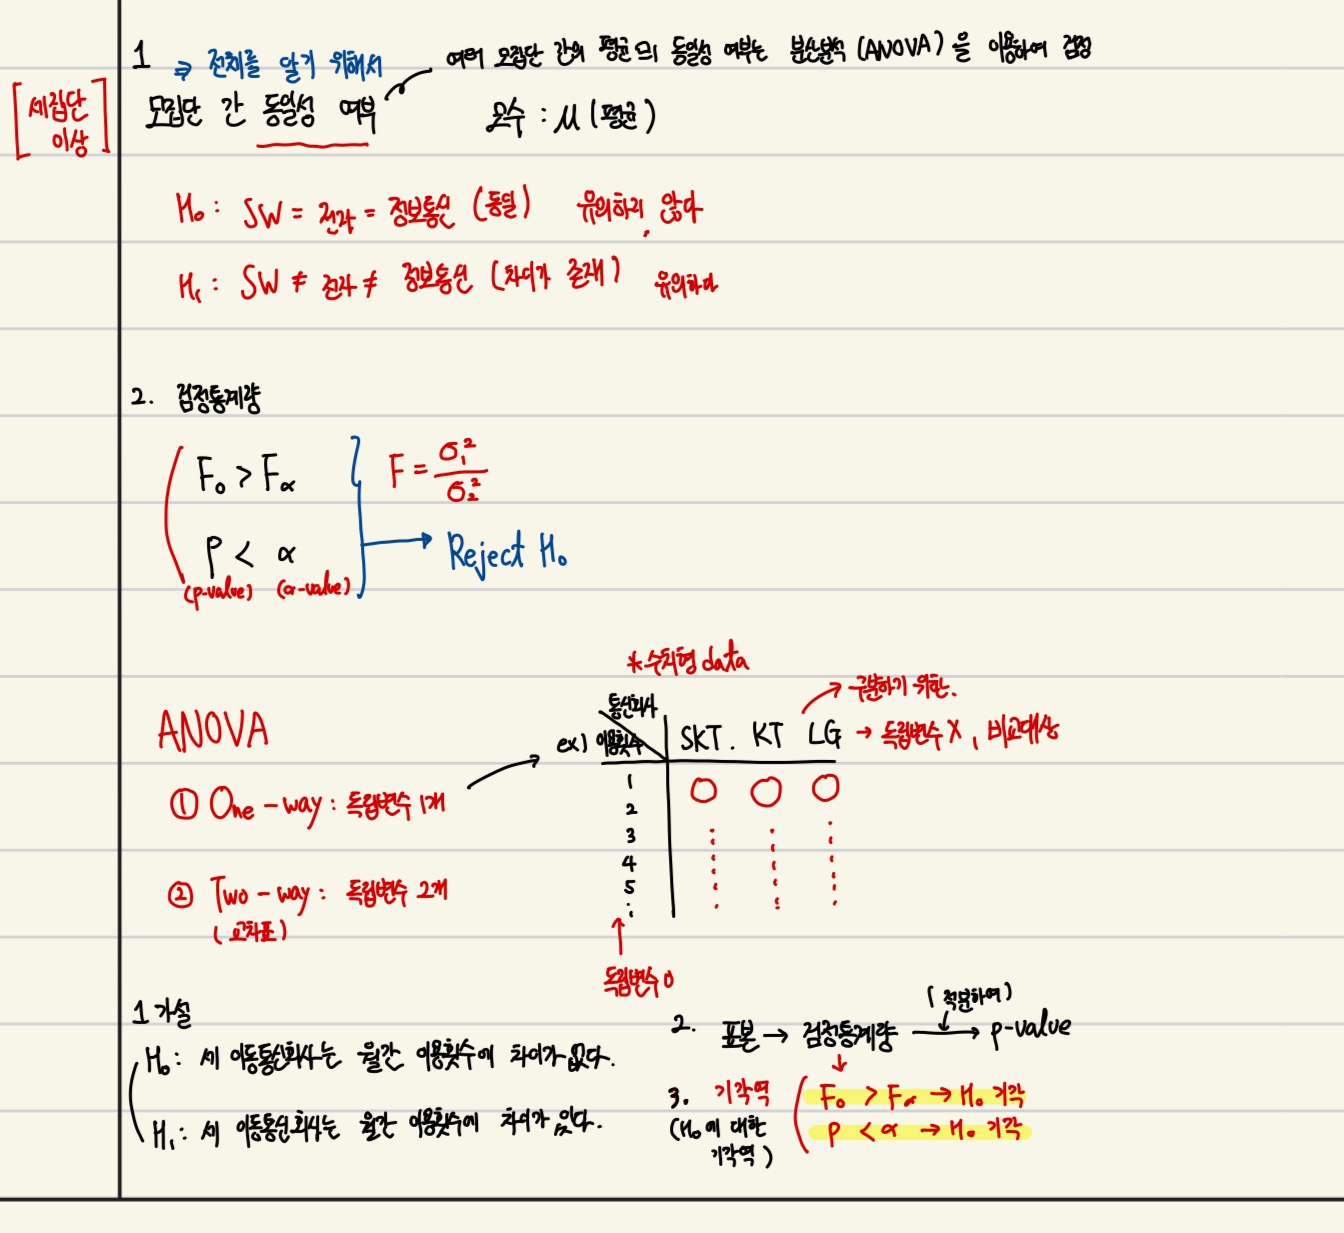 1
⇒ 전체를 알기 위해서
여러 모집단 간의 평균의 동일성 여부는 분산분석 (ANOVA) 을 이용하여 검정
[세집단 이상]
모집단 간 동일성 여부
모수 : μ (평균)
H₀ : SW = 전자 = 정보통신 (동일) 유의하지 않다
H₁ : SW ≠ 전자 ≠ 정보통신 (차이가 존재) 유의하다
2. 검정통계량
F₀ > Fα
F = σ₁² / σ₂²
P < α
(p-value) (α-value)
→ Reject H₀
* 수치형 data
→ 구분하기 위한.
ANOVA
통신회사
ex) 이용횟수 SKT. KT LG → 독립변수 X, 비교대상
① One-way : 독립변수 1개
1
2
3
4
5
② Two-way : 독립변수 2개
(교차표)
독립변수 0
1 가설
H₀ : 세 이동통신회사는 월간 이용횟수에 차이가 없다.
H₁ : 세 이동통신회사는 월간 이용횟수에 차이가 있다.
(적분하여)
2. 표본 → 검정통계량 → p-value
3. 기각역
(H₀에 대한 기각역)
F₀ > Fα → H₀ 기각
P < α → H₀ 기각